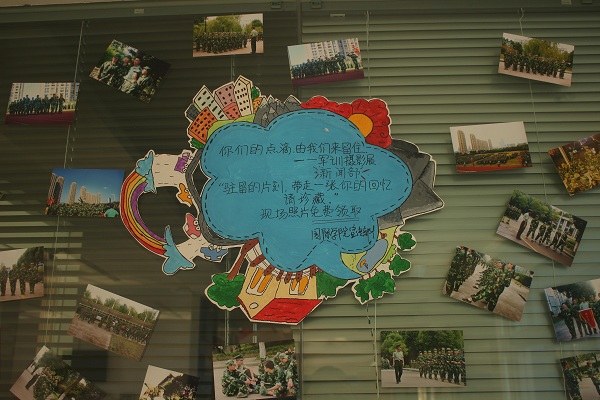 你们的点滴,由我们来留住
——军训摄影展
新闻部
"驻留的片刻,带走一张你的回忆
请珍藏
现场照片免费领取
国际学院宣